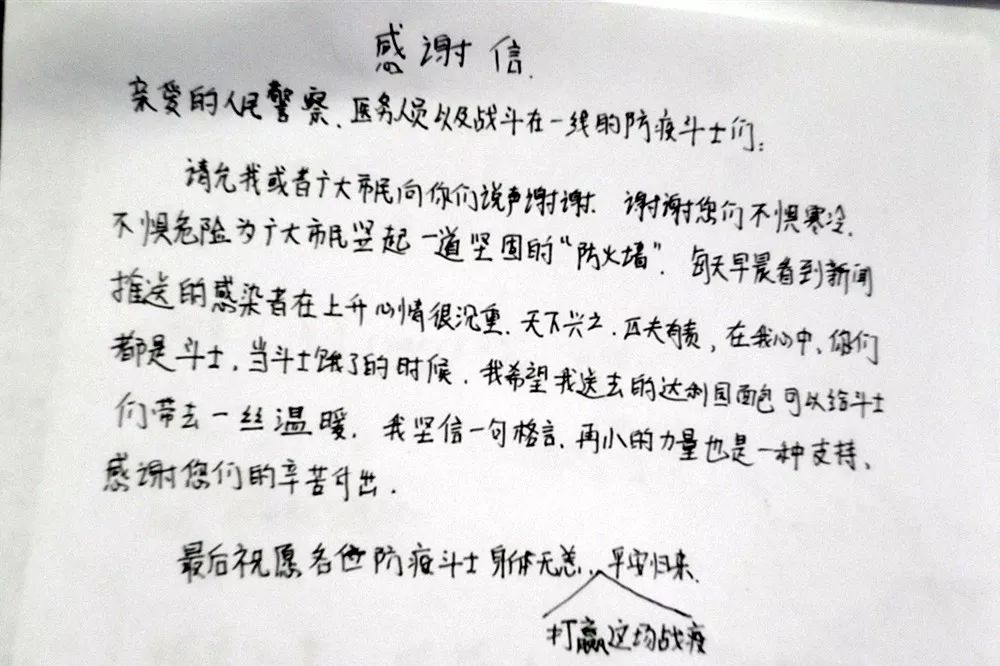 感谢信.
亲爱的人民警察、医务人员以及战斗在一线的防疫斗士们:
请允我或者广大市民向你们说声谢谢. 谢谢您们不惧寒冷.
不惧危险为广大市民竖起一道坚固的“防火墙”. 每天早晨看到新闻
推送的感染者在上升心情很沉重. 天下兴亡. 匹夫有责, 在我心中、你们
都是斗士, 当斗士饿了的时候. 我希望我送去的达利园面包可以给斗士
们带去一丝温暖. 我坚信一句格言. 再小的力量也是一种支持、
感谢您们的辛苦付出.
最后祝愿各位防疫斗士身体无恙. 平安归来.
打赢这场战疫